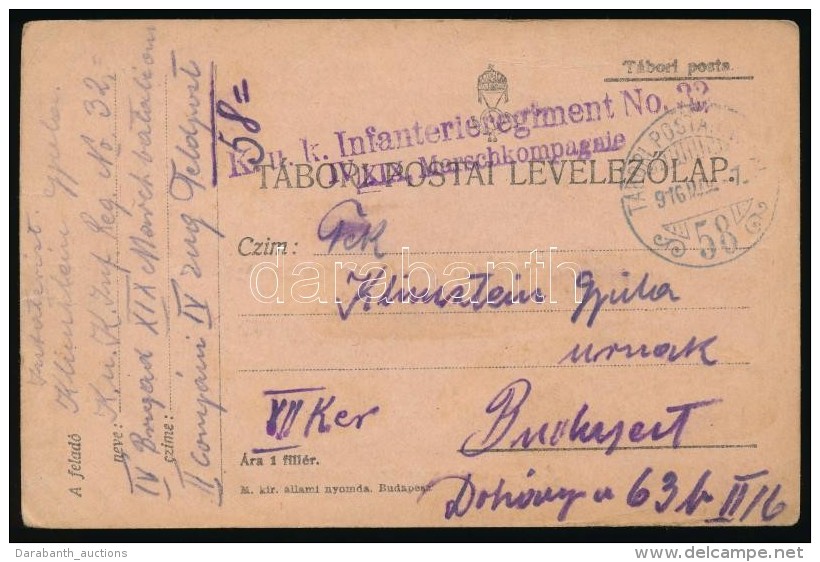 Tábori posta.
K. u. k. Infanterieregiment No. 32
IV. XIX. Marschkompagnie
TÁBORI POSTAI LEVELEZŐLAP.
TÁBORI POSTA
916
58
Czim:
Klunstein Gyula
urnak
VII Ker
Budapest
Dohány u 63b II/16
Ára 1 fillér.
M. kir. állami nyomda. Budapest
A feladó
Klunstein Gyula
neve: K. u. K. Inf. Reg. No 32.=
IV Brigád XIX Marchbatalion
czime:
II Compáni IV Zug Feldpost
58=
darabanth
Darabanth_auctions
delcampe.net